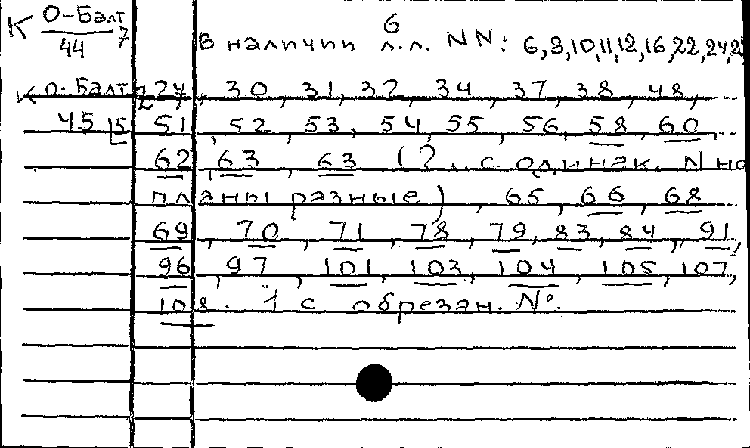 К О-Балт 7
44
6
В наличии л.л. NN: 6,8,10,11,12,16,22,24,2
К О-Балт 27, 30, 31, 32, 34, 37, 38, 48,
45 5 51, 52, 53, 54, 55, 56, 58, 60,
62, 63, 63 (2 л. с одинак. N но
планы разные), 65, 66, 68
69, 70, 71, 78, 79, 83, 84, 91,
96, 97, 101, 103, 104, 105, 107,
108. 1 с обрезан. №.